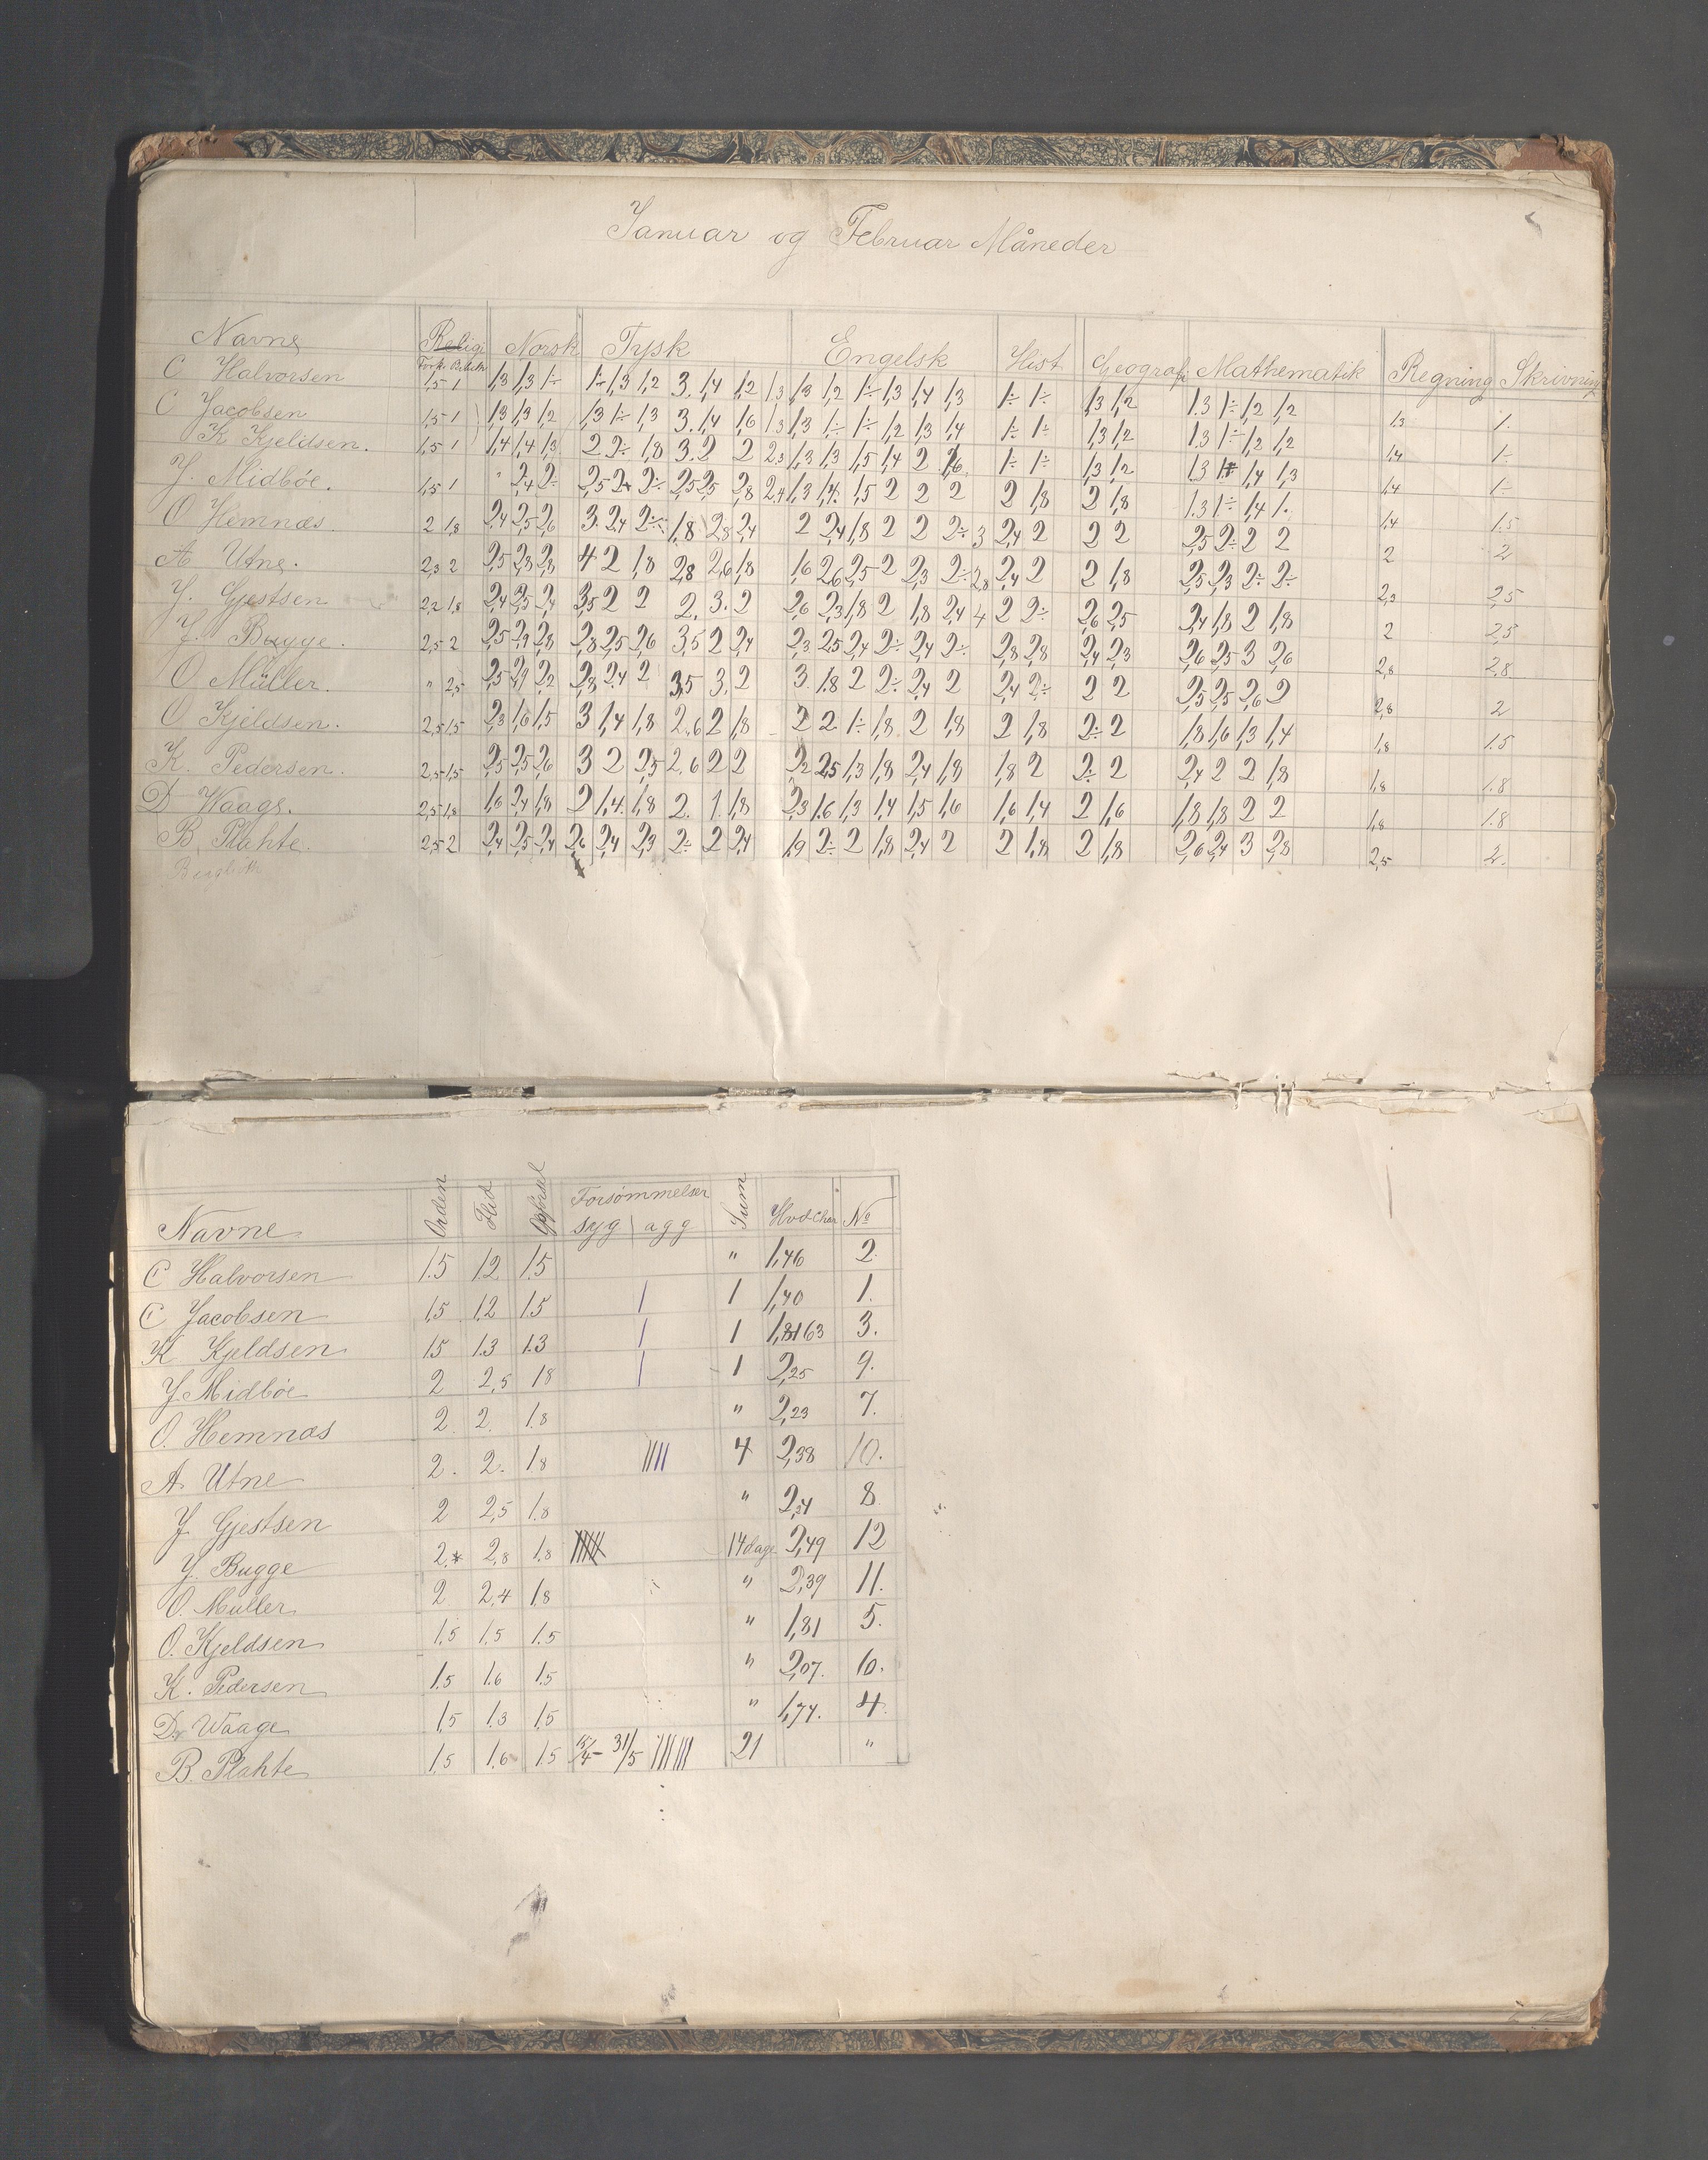 Januar og Februar Måneder
Navne Religi Norsk Tysk Engelsk Hist Geografi Mathematik Regning Skrivning
C Halvorsen 1,5 1 1,3 1,3 1÷ 1÷ 1,3 1,2 3. 1,4 1,2 1,3 1,3 1,2 1÷ 1,3 1,4 1,3 1÷ 1÷ 1,3 1,2 1.3 1÷ 1,2 1,2 1,3 1.
C Jacobsen 1,5 1 1,3 1,3 1,2 1,3 1÷ 1,3 3. 1,4 1,6 1,3 1,3 1÷ 1÷ 1,2 1,3 1,4 1÷ 1÷ 1,3 1,2 1.3 1÷ 1,2 1,2 1,4 1÷
K Kjeldsen. 1,5 1 1,4 1,4 1,3 2 2÷ 1,8 3. 2 2 2,3 1,3 1,3 1,5 1,4 2 1,6 1÷ 1÷ 1,3 1,2 1,4 1,3 1,4 1÷
J. Midböe. 1,5 1 " 2,4 2÷ 2,5 2÷ 2,5 2,5 2,8 2,4 1,3 1,4 1,5 2 2 2 2 1,8 2 1,8 1.3 1÷ 1,4 1. 1,4 1.5
O Hemnæs. 2 1,8 2,4 2,5 2,6 3. 2,4 2÷ 1,8 2,8 2,4 2 2,4 1,8 2 2 2÷ 3 2,4 2 2 2 2,5 2÷ 2 2 2 2
A Utne. 2,3 2 2,5 2,8 2,8 4 2 1,8 2,8 2,6 1,8 1,6 2,6 2,5 2 2,3 2÷ 2,8 2,4 2 2 1,8 2,5 2,3 2÷ 2÷ 2,3 2,5
J. Gjestsen 2,2 1,8 2,4 2,5 2,4 3,5 2 2 2. 3. 2 2,6 2,3 1,8 2 1,8 2,4 4 2 2÷ 2,6 2,5 2,4 1,8 2 1,8 2 2,5
J. Bugge. 2,5 2 2,5 2,9 2,8 2,8 2,5 2,6 3,5 2 2,4 2,3 2,5 2,4 2÷ 2,4 2÷ 2,8 2,8 2,4 2,3 2,6 2,5 3 2,6 2,8 2,8
O Müller. " 2,5 2,5 2,7 2,2 2,8 2,4 2 3,5 3. 2 3. 1.8 2 2÷ 2,4 2 2,4 2÷ 2 2 2,5 2,5 2,6 2 2,8 2
O Kjeldsen. 2,5 1,5 2,3 1,6 1,5 3 1,4 1,8 2,6 2 1,8 2 2. 1÷ 1,8 2 1,8 2 1,8 2÷ 2 1,8 1,6 1,3 1,4 1,8 1.5
K. Pedersen. 2,5 1,5 2,5 2,5 2,6 3 2 2,5 2,6 2 2 2,2 2,5 1,3 1,8 2,4 1,8 1,8 2 2÷ 2 2,4 2 2 1,8 1,8 1.8
D Waage. 2,5 1,8 1,6 2,4 1,8 2 1,4. 1,8 2. 1. 1,8 2,3 1.6 1,3 1,4 1,5 1,6 1,6 1,4 2 1,6 1,8 1,8 2 2 1,8 1.8
B. Plahte. 2,5 2 2,4 2,5 2,4 2,6 2,4 2,3 2÷ 2 2,4 1,9 2÷ 2 1,8 2,4 2 2 1,8 2 1,8 2,6 2,4 3 2,8 2,5 2.
Navne Orden Flid Opførsel Forsømmelser Sum Hvdchar No
syg agg
C Halvorsen 1.5 1.2 1.5 " 1,46 2.
C Jacobsen 1,5 1.2 1.5 | 1 1,40 1.
K Kjeldsen 1.5 1.3 1.3 | 1 1,63 3.
J. Midböe 2 2,5 1.8 | 1 2,25 9.
O. Hemnæs 2. 2. 1.8 " 2,23 7.
A. Utne 2. 2. 1.8 |||| 4 2,38 10.
J. Gjestsen 2 2,5 1.8 " 2,24 8.
J. Bugge 2. 2,8 1.8 14 dage 2,49 12
O. Müller 2. 2,4 1,8 " 2,39 11.
O. Kjeldsen 1,5 1,5 1.5 " 1,81 5.
K. Pedersen 1.5 1.6 1,5 " 2,07. 6.
D. Waage 1,5 1.3 1,5 " 1,74. 4.
B. Plahte 1,5 1.6 1.5 15/4 - 31/5 |||||| 21 "